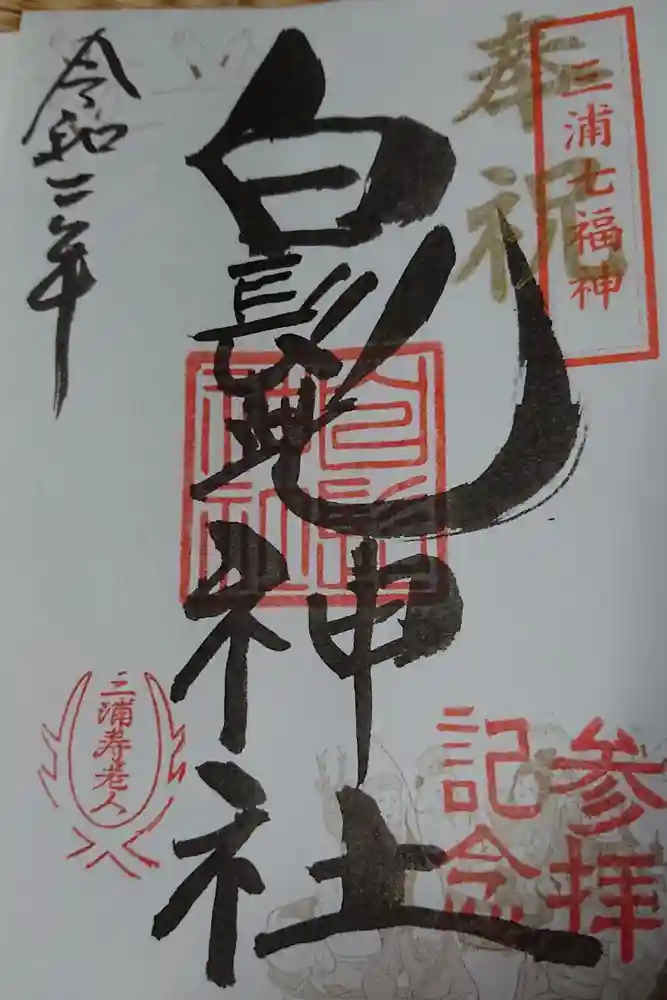 三浦七福神
奉祝
参拝
記念
白髭神社
白髭
神社
令和二年
三浦寿老人